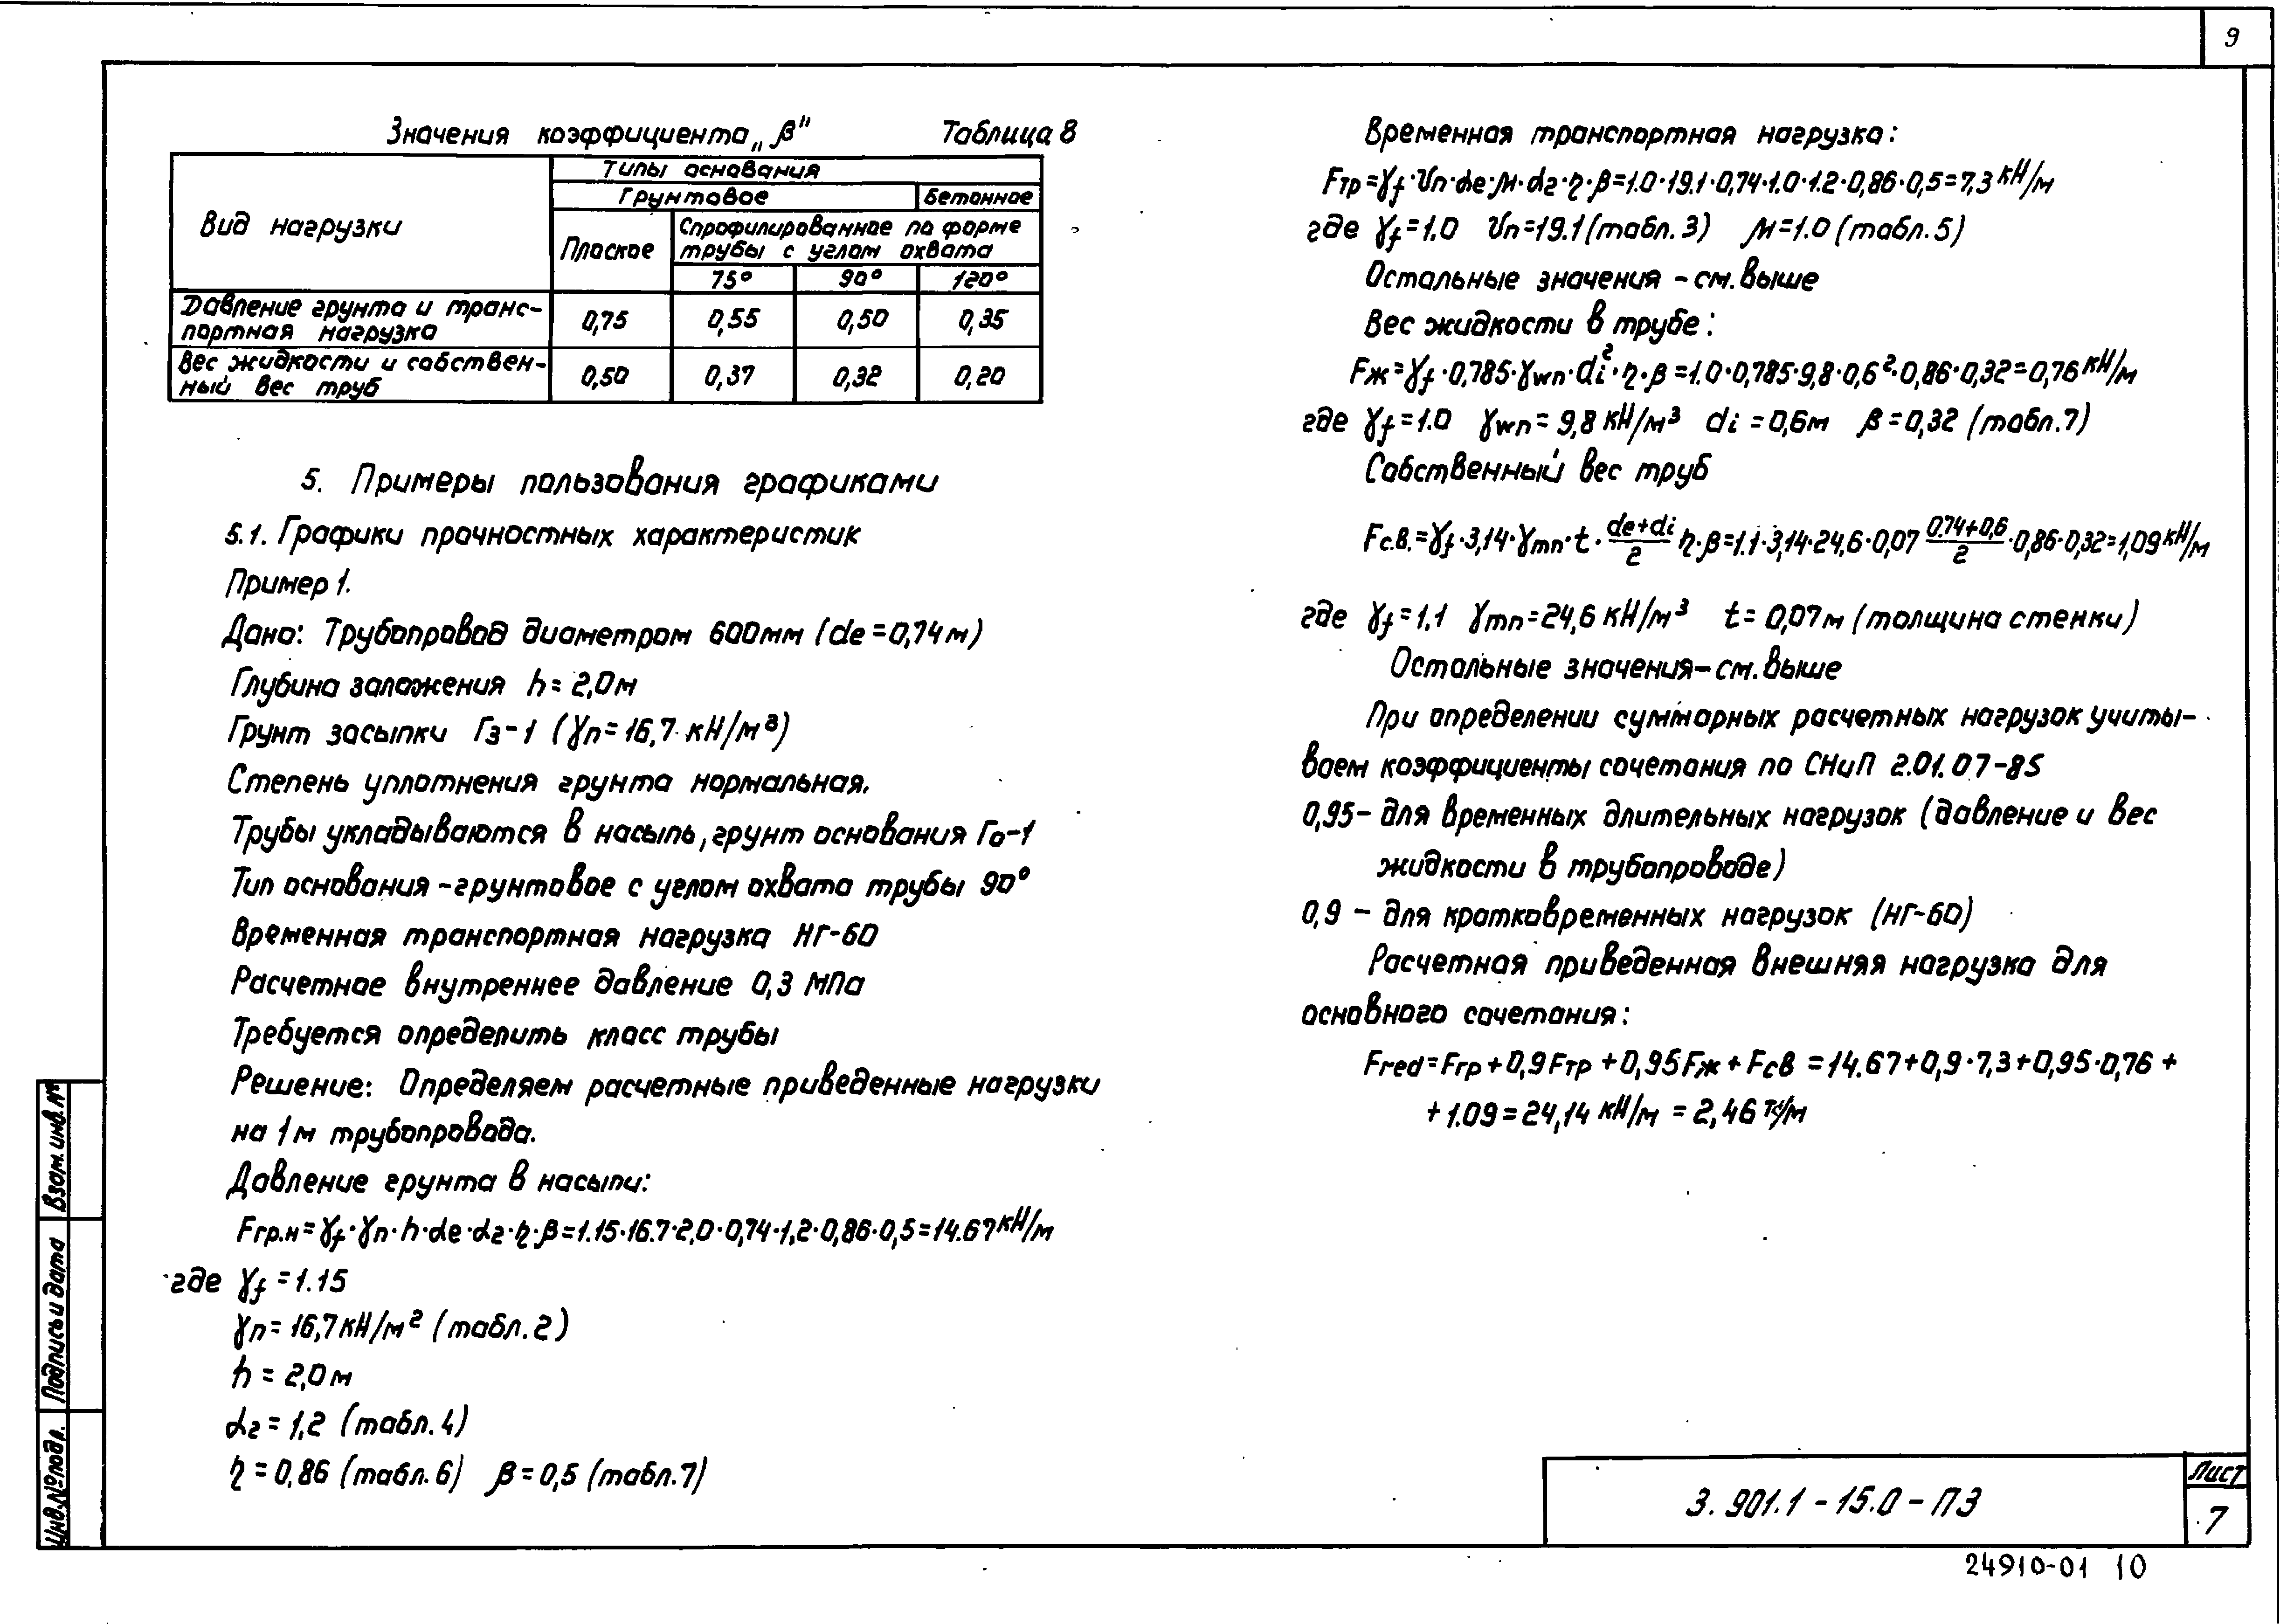 9
Значения коэффициента „β" Таблица 8
Вид нагрузки
Типы основания
Грунтовое Бетонное
Плоское
Спрофилированное по форме
трубы с углом охвата
75° 90° 120°
Давление грунта и транс-
портная нагрузка 0,75 0,55 0,50 0,35
Вес жидкости и собствен-
ный вес труб 0,50 0,37 0,32 0,20
5. Примеры пользования графиками
5.1. Графики прочностных характеристик
Пример 1.
Дано: Трубопровод диаметром 600мм (de=0,74м)
Глубина заложения h=2,0м
Грунт засыпки Гз-1 (γn=16,7 кН/м³)
Степень уплотнения грунта нормальная.
Трубы укладываются в насыпь, грунт основания Го-1
Тип основания - грунтовое с углом охвата трубы 90°
Временная транспортная нагрузка НГ-60
Расчетное внутреннее давление 0,3 МПа
Требуется определить класс трубы
Решение: Определяем расчетные приведенные нагрузки
на 1м трубопровода.
Давление грунта в насыпи:
Fгр.н=γf·γn·h·de·αг·η·β=1.15·16.7·2,0·0,74·1,2·0,86·0,5=14.67 кН/м
где γf=1.15
γn=16,7кН/м² (табл.2)
h=2,0м
αг=1,2 (табл.4)
η=0,86 (табл.6) β=0,5 (табл.7)
Временная транспортная нагрузка:
Fтр=γf·νn·de·μ·αг·η·β=1.0·19.1·0,74·1.0·1.2·0,86·0,5=7,3 кН/м
где γf=1.0 νn=19.1 (табл.3) μ=1.0 (табл.5)
Остальные значения - см. выше
Вес жидкости в трубе:
Fж=γf·0,785·γwn·di²·η·β=1.0·0,785·9,8·0,6²·0,86·0,32=0,76 кН/м
где γf=1.0 γwn=9,8 кН/м³ di=0,6м β=0,32 (табл.7)
Собственный вес труб
Fс.в.=γf·3,14·γmn·t·(de+di)/2 η·β=1.1·3,14·24,6·0,07 (0.74+0,6)/2·0,86·0,32=1,09 кН/м
где γf=1,1 γmn=24,6 кН/м³ t=0,07м (толщина стенки)
Остальные значения - см. выше
При определении суммарных расчетных нагрузок учиты-
ваем коэффициенты сочетания по СНиП 2.01.07-85
0,95 - для временных длительных нагрузок (давление и вес
жидкости в трубопроводе)
0,9 - для кратковременных нагрузок (НГ-60)
Расчетная приведенная внешняя нагрузка для
основного сочетания:
Fred=Fгр+0,9Fтр+0,95Fж+Fсв=14.67+0,9·7,3+0,95·0,76+
+1.09=24,14 кН/м=2,46 тс/м
Взам. инв. №
Подпись и дата
Инв. № подл.
3.901.1-15.0-ПЗ
Лист
7
24910-01 10